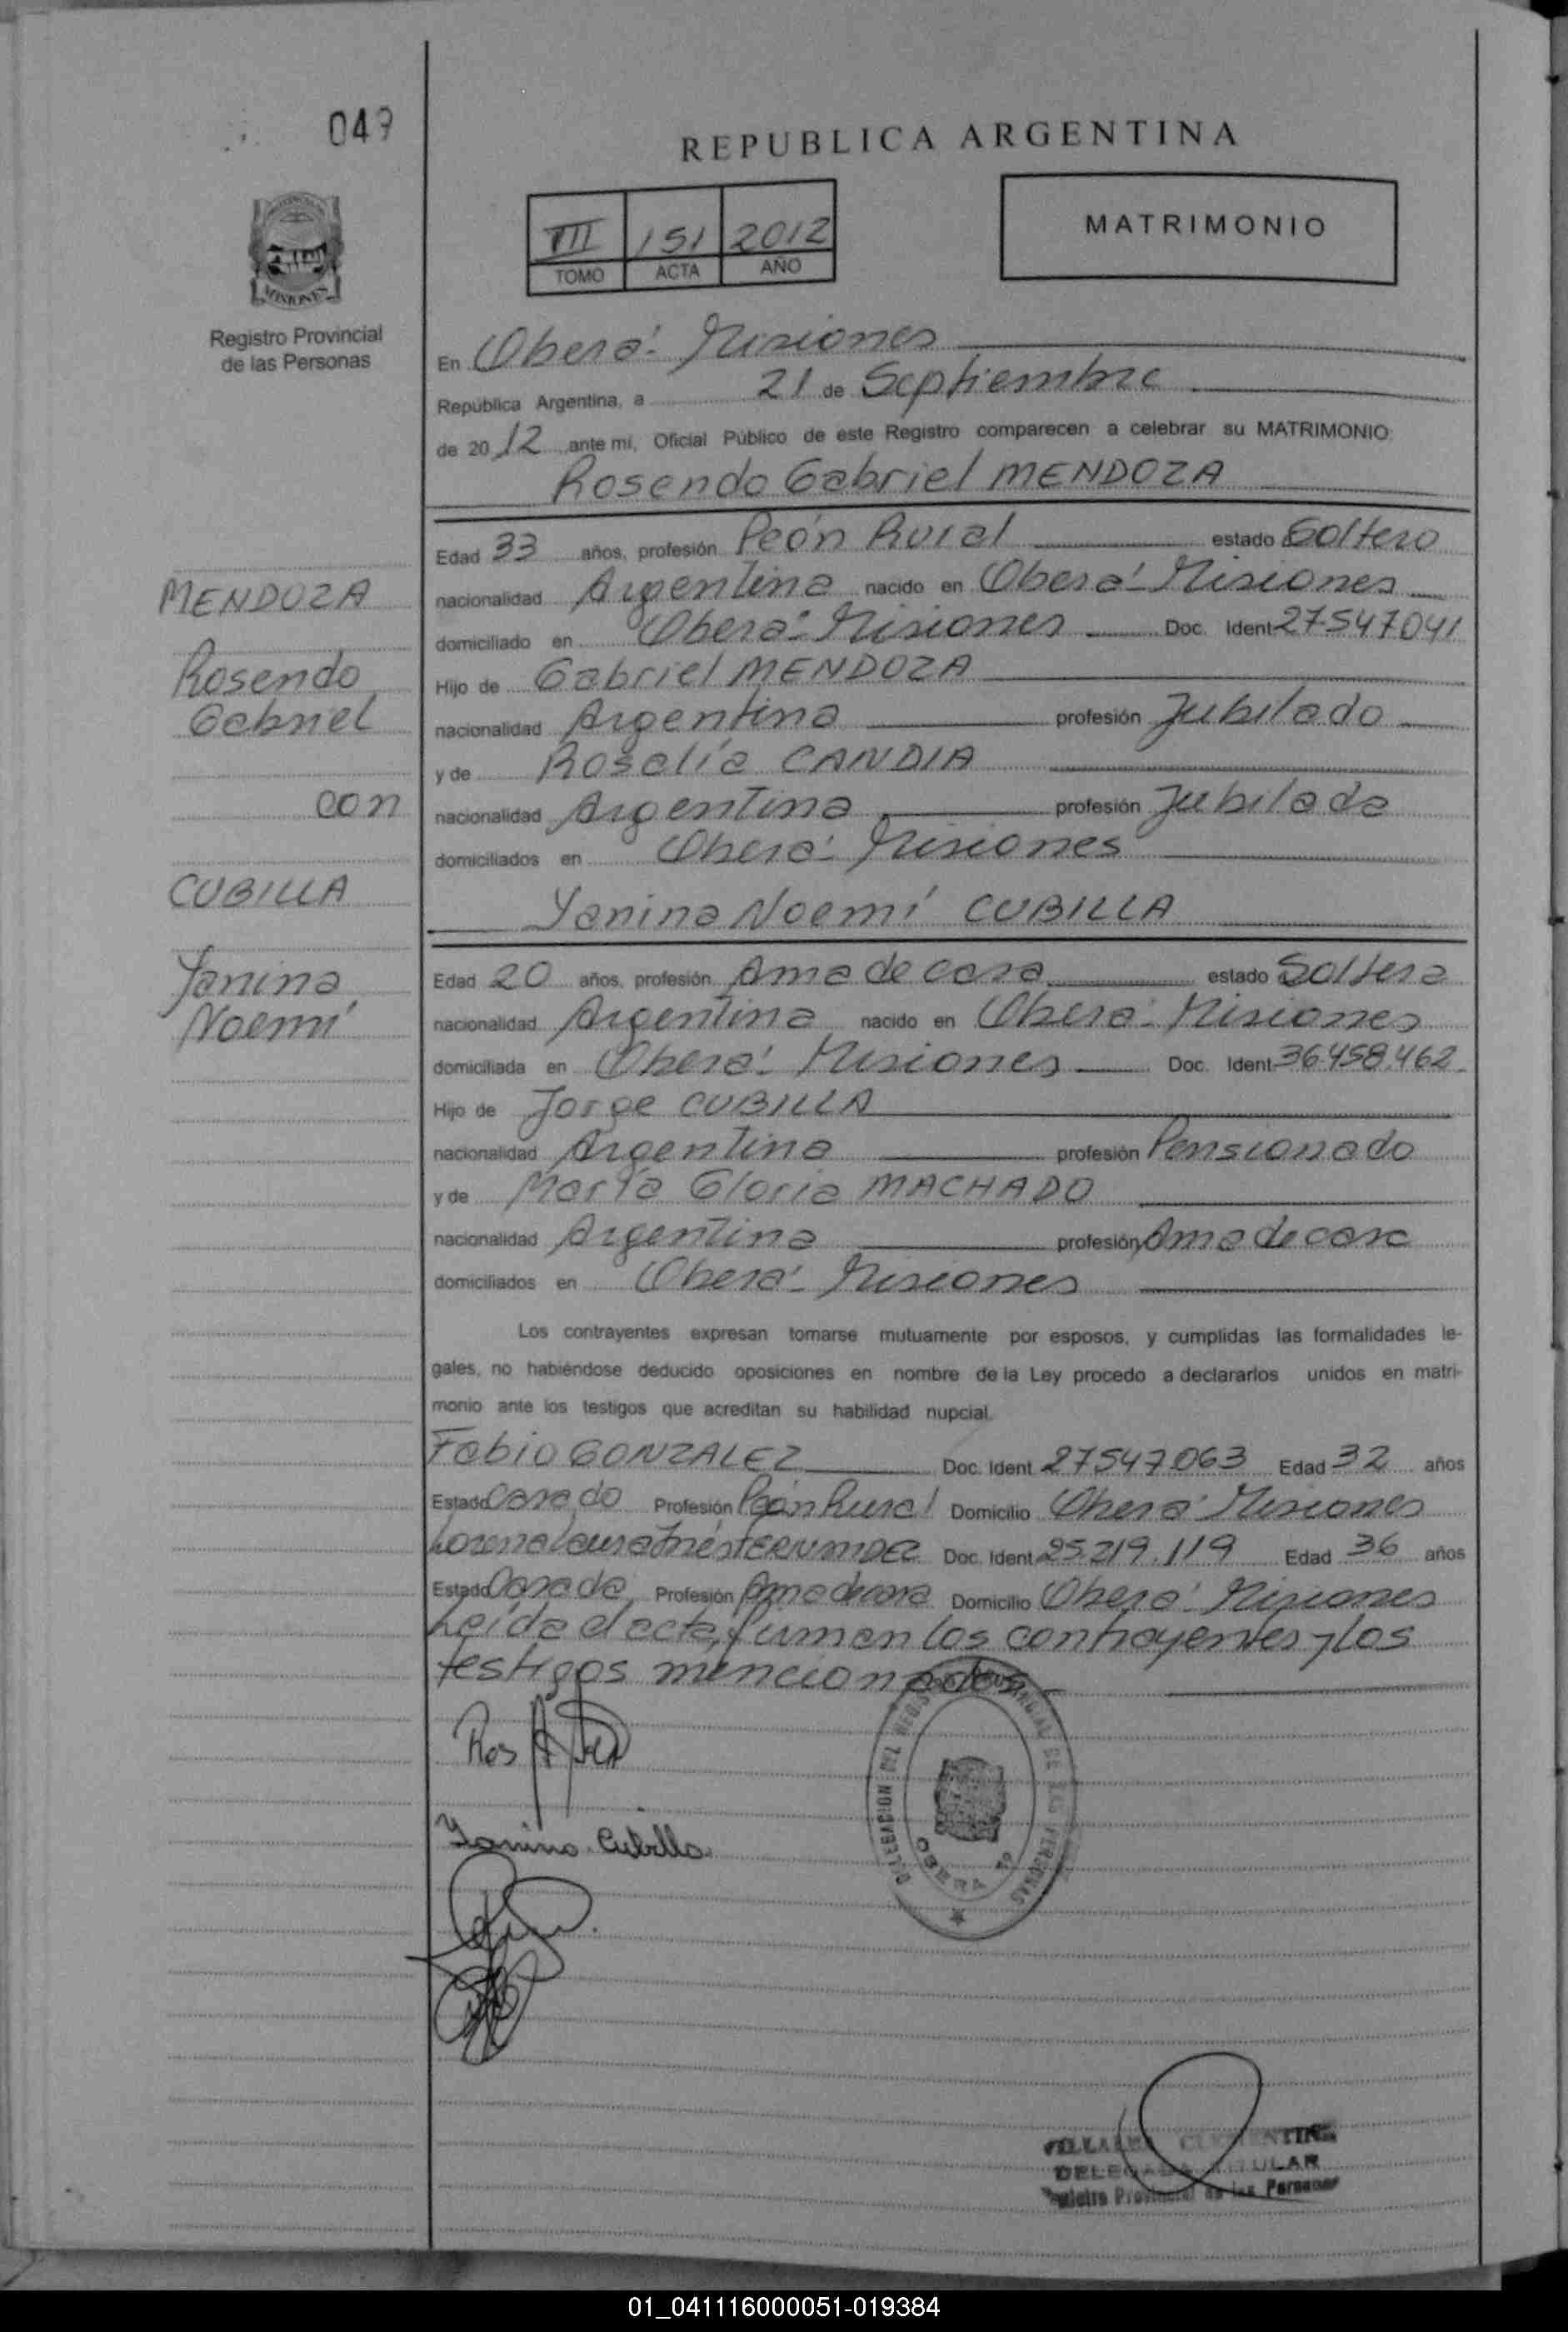 049
REPUBLICA ARGENTINA
MATRIMONIO
III 151 2012
TOMO ACTA AÑO
MISIONES
Registro Provincial
de las Personas
En Oberá - Misiones
República Argentina, a 21 de Septiembre
de 2012 ante mí, Oficial Público de este Registro comparecen a celebrar su MATRIMONIO:
Rosendo Gabriel MENDOZA
Edad 33 años, profesión Peón Rural estado Soltero
MENDOZA
nacionalidad Argentina nacido en Oberá - Misiones
domiciliado en Oberá - Misiones Doc. Ident 27547041
Rosendo
Hijo de Gabriel MENDOZA
Gabriel
nacionalidad Argentina profesión Jubilado
y de Rosalía CANDIA
con
nacionalidad Argentina profesión Jubilada
domiciliados en Oberá - Misiones
CUBILLA
Yanina Noemí CUBILLA
Edad 20 años, profesión Ama de casa estado Soltera
Yanina
Noemí
nacionalidad Argentina nacido en Oberá - Misiones
domiciliada en Oberá - Misiones Doc. Ident 36.458.462
Hijo de Jorge CUBILLA
nacionalidad Argentina profesión Pensionado
y de María Gloria MACHADO
nacionalidad Argentina profesión Ama de casa
domiciliados en Oberá - Misiones
Los contrayentes expresan tomarse mutuamente por esposos, y cumplidas las formalidades le-
gales, no habiéndose deducido oposiciones en nombre de la Ley procedo a declararlos unidos en matri-
monio ante los testigos que acreditan su habilidad nupcial.
Fabio GONZALEZ Doc. Ident 27547.063 Edad 32 años
Estado Casado Profesión Peón Rural Domicilio Oberá - Misiones
Lorena Laura Inés FERNANDEZ Doc. Ident 25.219.119 Edad 36 años
Estado Casada Profesión Ama de casa Domicilio Oberá - Misiones
Leída el acta, firman los contrayentes y los
testigos mencionados
DELEGACION DEL REGISTRO PROVINCIAL DE LAS PERSONAS
OBERA
Yanina Cubilla
DELEGADA TITULAR
Registro Provincial de las Personas
01_041116000051-019384